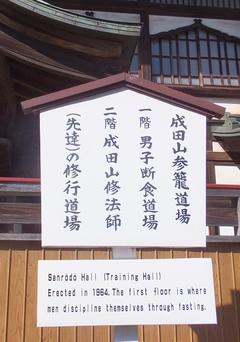 成田山参籠道場
一階 男子断食道場
二階 成田山修法師
(先達)の修行道場
Sanrōdō Hall (Training Hall)
Erected in 1964. The first floor is where
men discipline themselves through fasting.